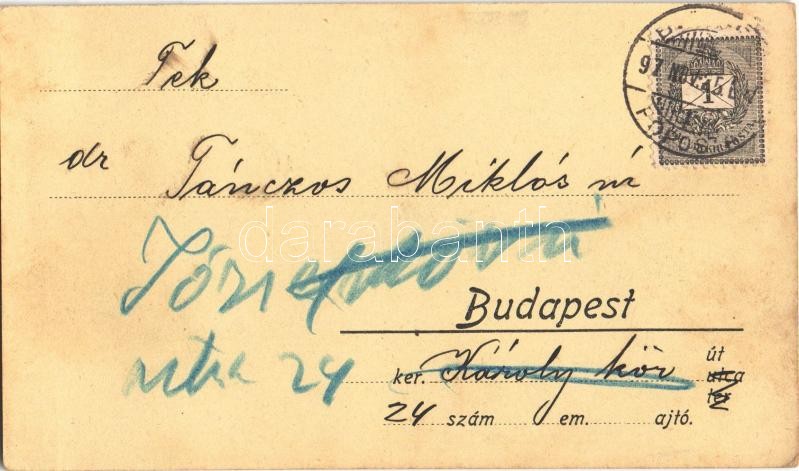 Tek
dr Tánczos Miklós
József
utca 24
Budapest
ker. Károly kör út
utca
tér
24 szám em. ajtó.
97 NOV.
1
darabanth